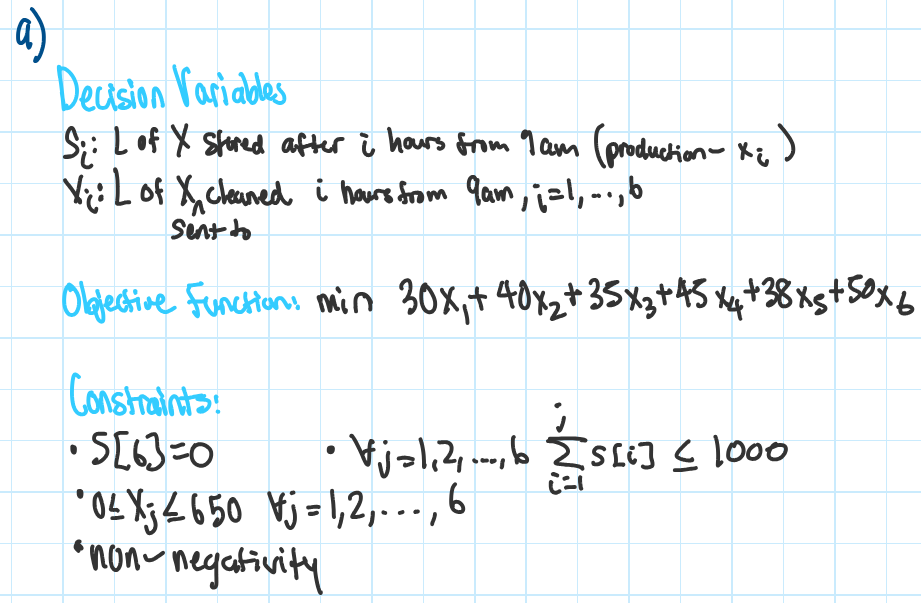 a)
Decision Variables
Sᵢ: L of X stored after i hours from 9am (production - xᵢ)
Xᵢ: L of X ^ cleaned i hours from 9am, i=1, ..., 6
sent to
Objective Function: min 30x₁ + 40x₂ + 35x₃ + 45x₄ + 38x₅ + 50x₆
Constraints:
• S[6]=0 • ∀j=1,2,...,6 ∑_{i=1}^{j} s[i] ≤ 1000
• 0≤Xⱼ≤650 ∀j=1,2,...,6
• non-negativity